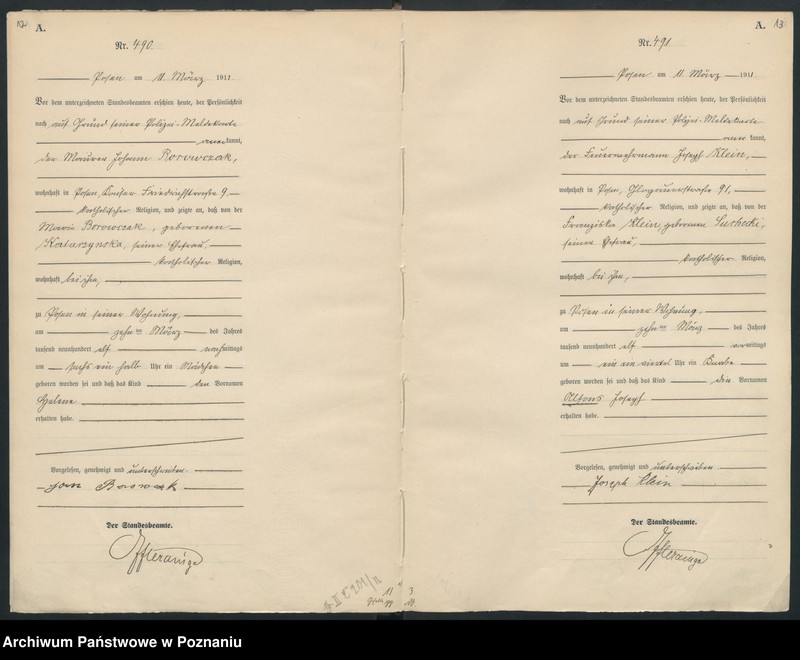 12
A.
Nr. 490.
Posen am 11. März 1911.
Vor dem unterzeichneten Standesbeamten erschien heute, der Persönlichkeit
nach auf Grund seiner Polizei-Meldekarte
aner kannt,
der Maurer Johann Borowczak,
wohnhaft in Posen, Friedrichstrasse 9
katholischer Religion, und zeigte an, daß von der
Maria Borowczak, geborenen
Katarzynska, seiner Ehefrau,
katholischer Religion,
wohnhaft bei ihm,
zu Posen in seiner Wohnung,
am zehnten März des Jahres
tausend neunhundert elf nachmittags
um sechs ein halb Uhr ein Mädchen
geboren worden sei und daß das Kind den Vornamen
Helene
erhalten habe.
Vorgelesen, genehmigt und unterschrieben.
Der Standesbeamte.
A. 13
Nr. 491
Posen am 11. März 1911
Vor dem unterzeichneten Standesbeamten erschien heute, der Persönlichkeit
nach auf Grund seiner Polizei-Meldekarte
aner kannt,
der Feuerwehrmann Joseph Klein,
wohnhaft in Posen, Glogauerstrasse 91,
katholischer Religion, und zeigte an, daß von der
Franziska Klein, geborenen Suchocki,
seiner Ehefrau,
katholischer Religion,
wohnhaft bei ihm,
zu Posen in seiner Wohnung,
am zehnten März des Jahres
tausend neunhundert elf vormittags
um ein ein viertel Uhr ein Knabe
geboren worden sei und daß das Kind die Vornamen
Alfons Joseph
erhalten habe.
Vorgelesen, genehmigt und unterschrieben
Joseph Klein
Der Standesbeamte.
Archiwum Państwowe w Poznaniu